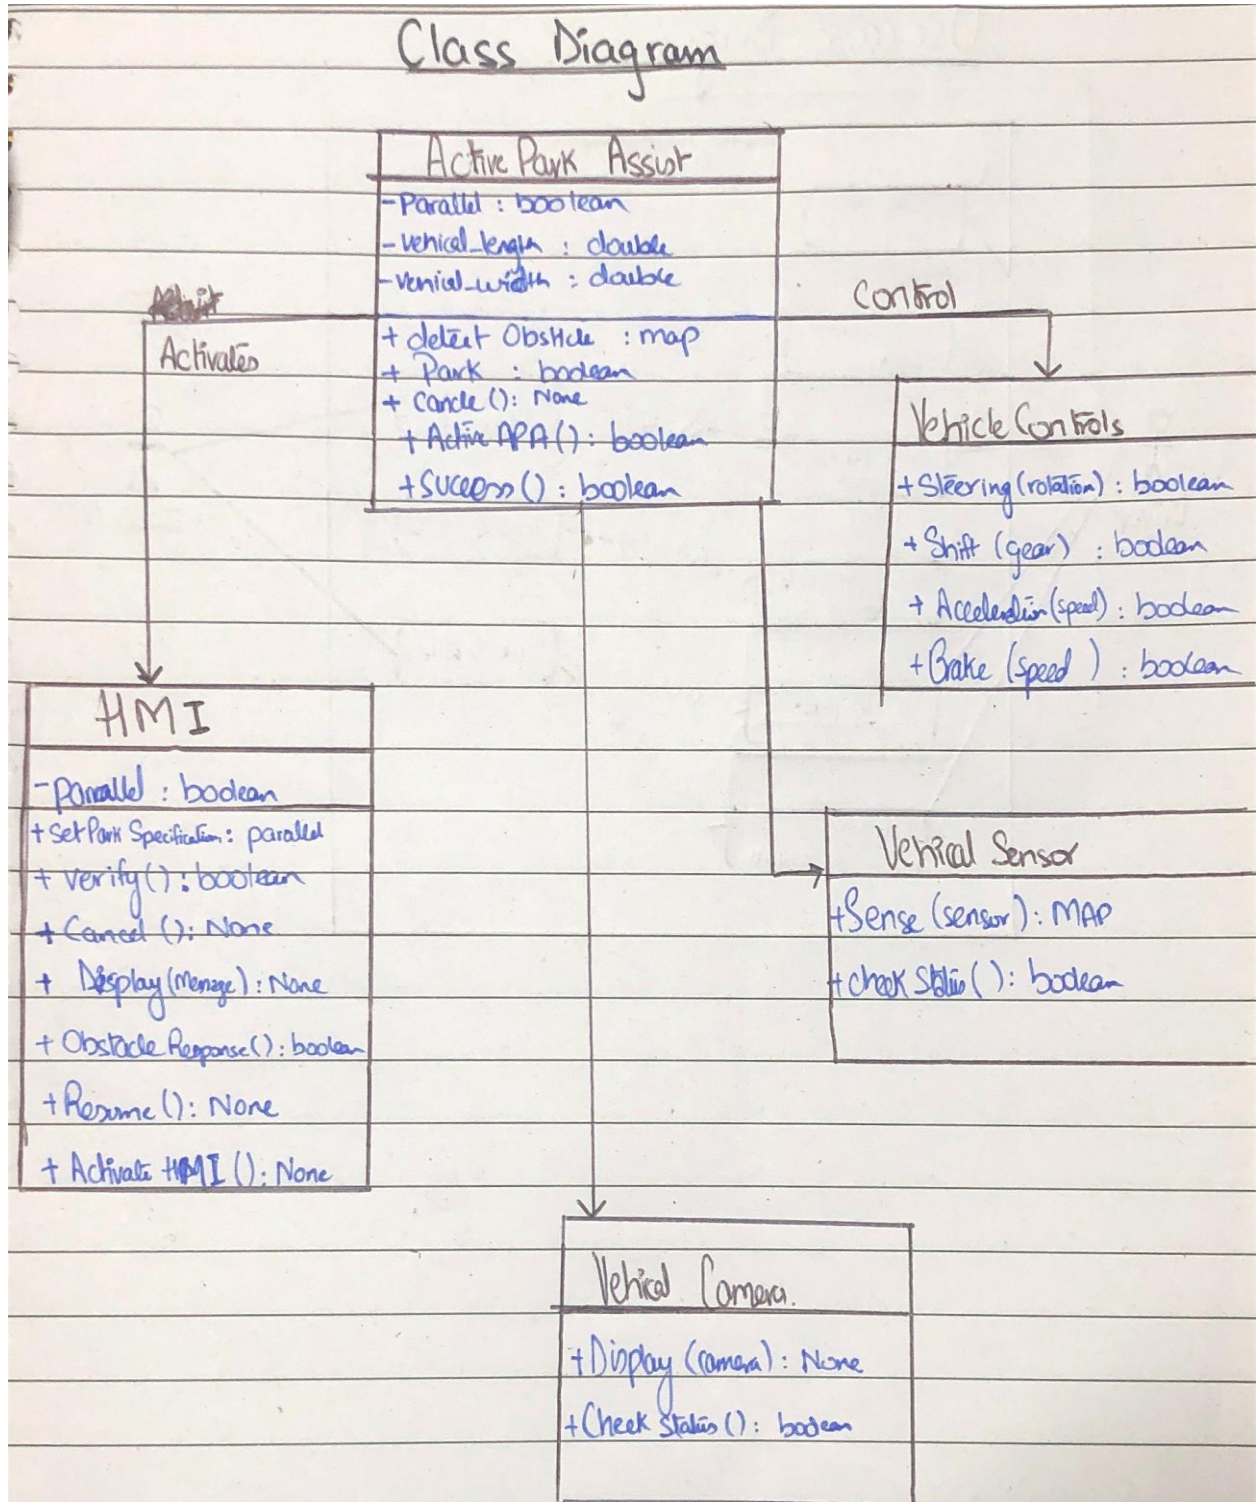 Class Diagram
Active Park Assist
- Parallel : boolean
- vehical_length : double
- vehical_width : double
Control
Activates
+ detect Obsticle : map
+ Park : boolean
+ Cancle () : None
+ Active APA () : boolean
+ Success () : boolean
Vehicle Controls
+ Steering (rotation) : boolean
+ Shift (gear) : boolean
+ Acceleration (speed) : boolean
+ Brake (speed ) : boolean
HMI
- Parallel : boolean
+ Set Park Specification : parallel
+ verify () : boolean
+ Cancel () : None
+ Display (Message) : None
+ Obstacle Response () : boolean
+ Resume () : None
+ Activate HMI () : None
Vehical Sensor
+ Sense (sensor) : MAP
+ check Status () : boolean
Vehical Camera.
+ Display (camera) : None
+ Check Status () : boolean